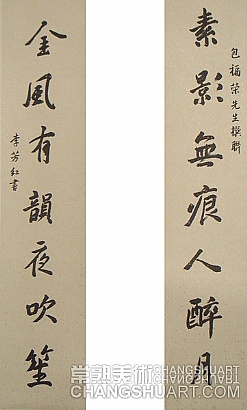 素影無痕人醉月
包福荣先生撰聯
金風有韻夜吹笙
李芳红書
常熟美術
CHANGSHUART
CHANGSHUART.COM